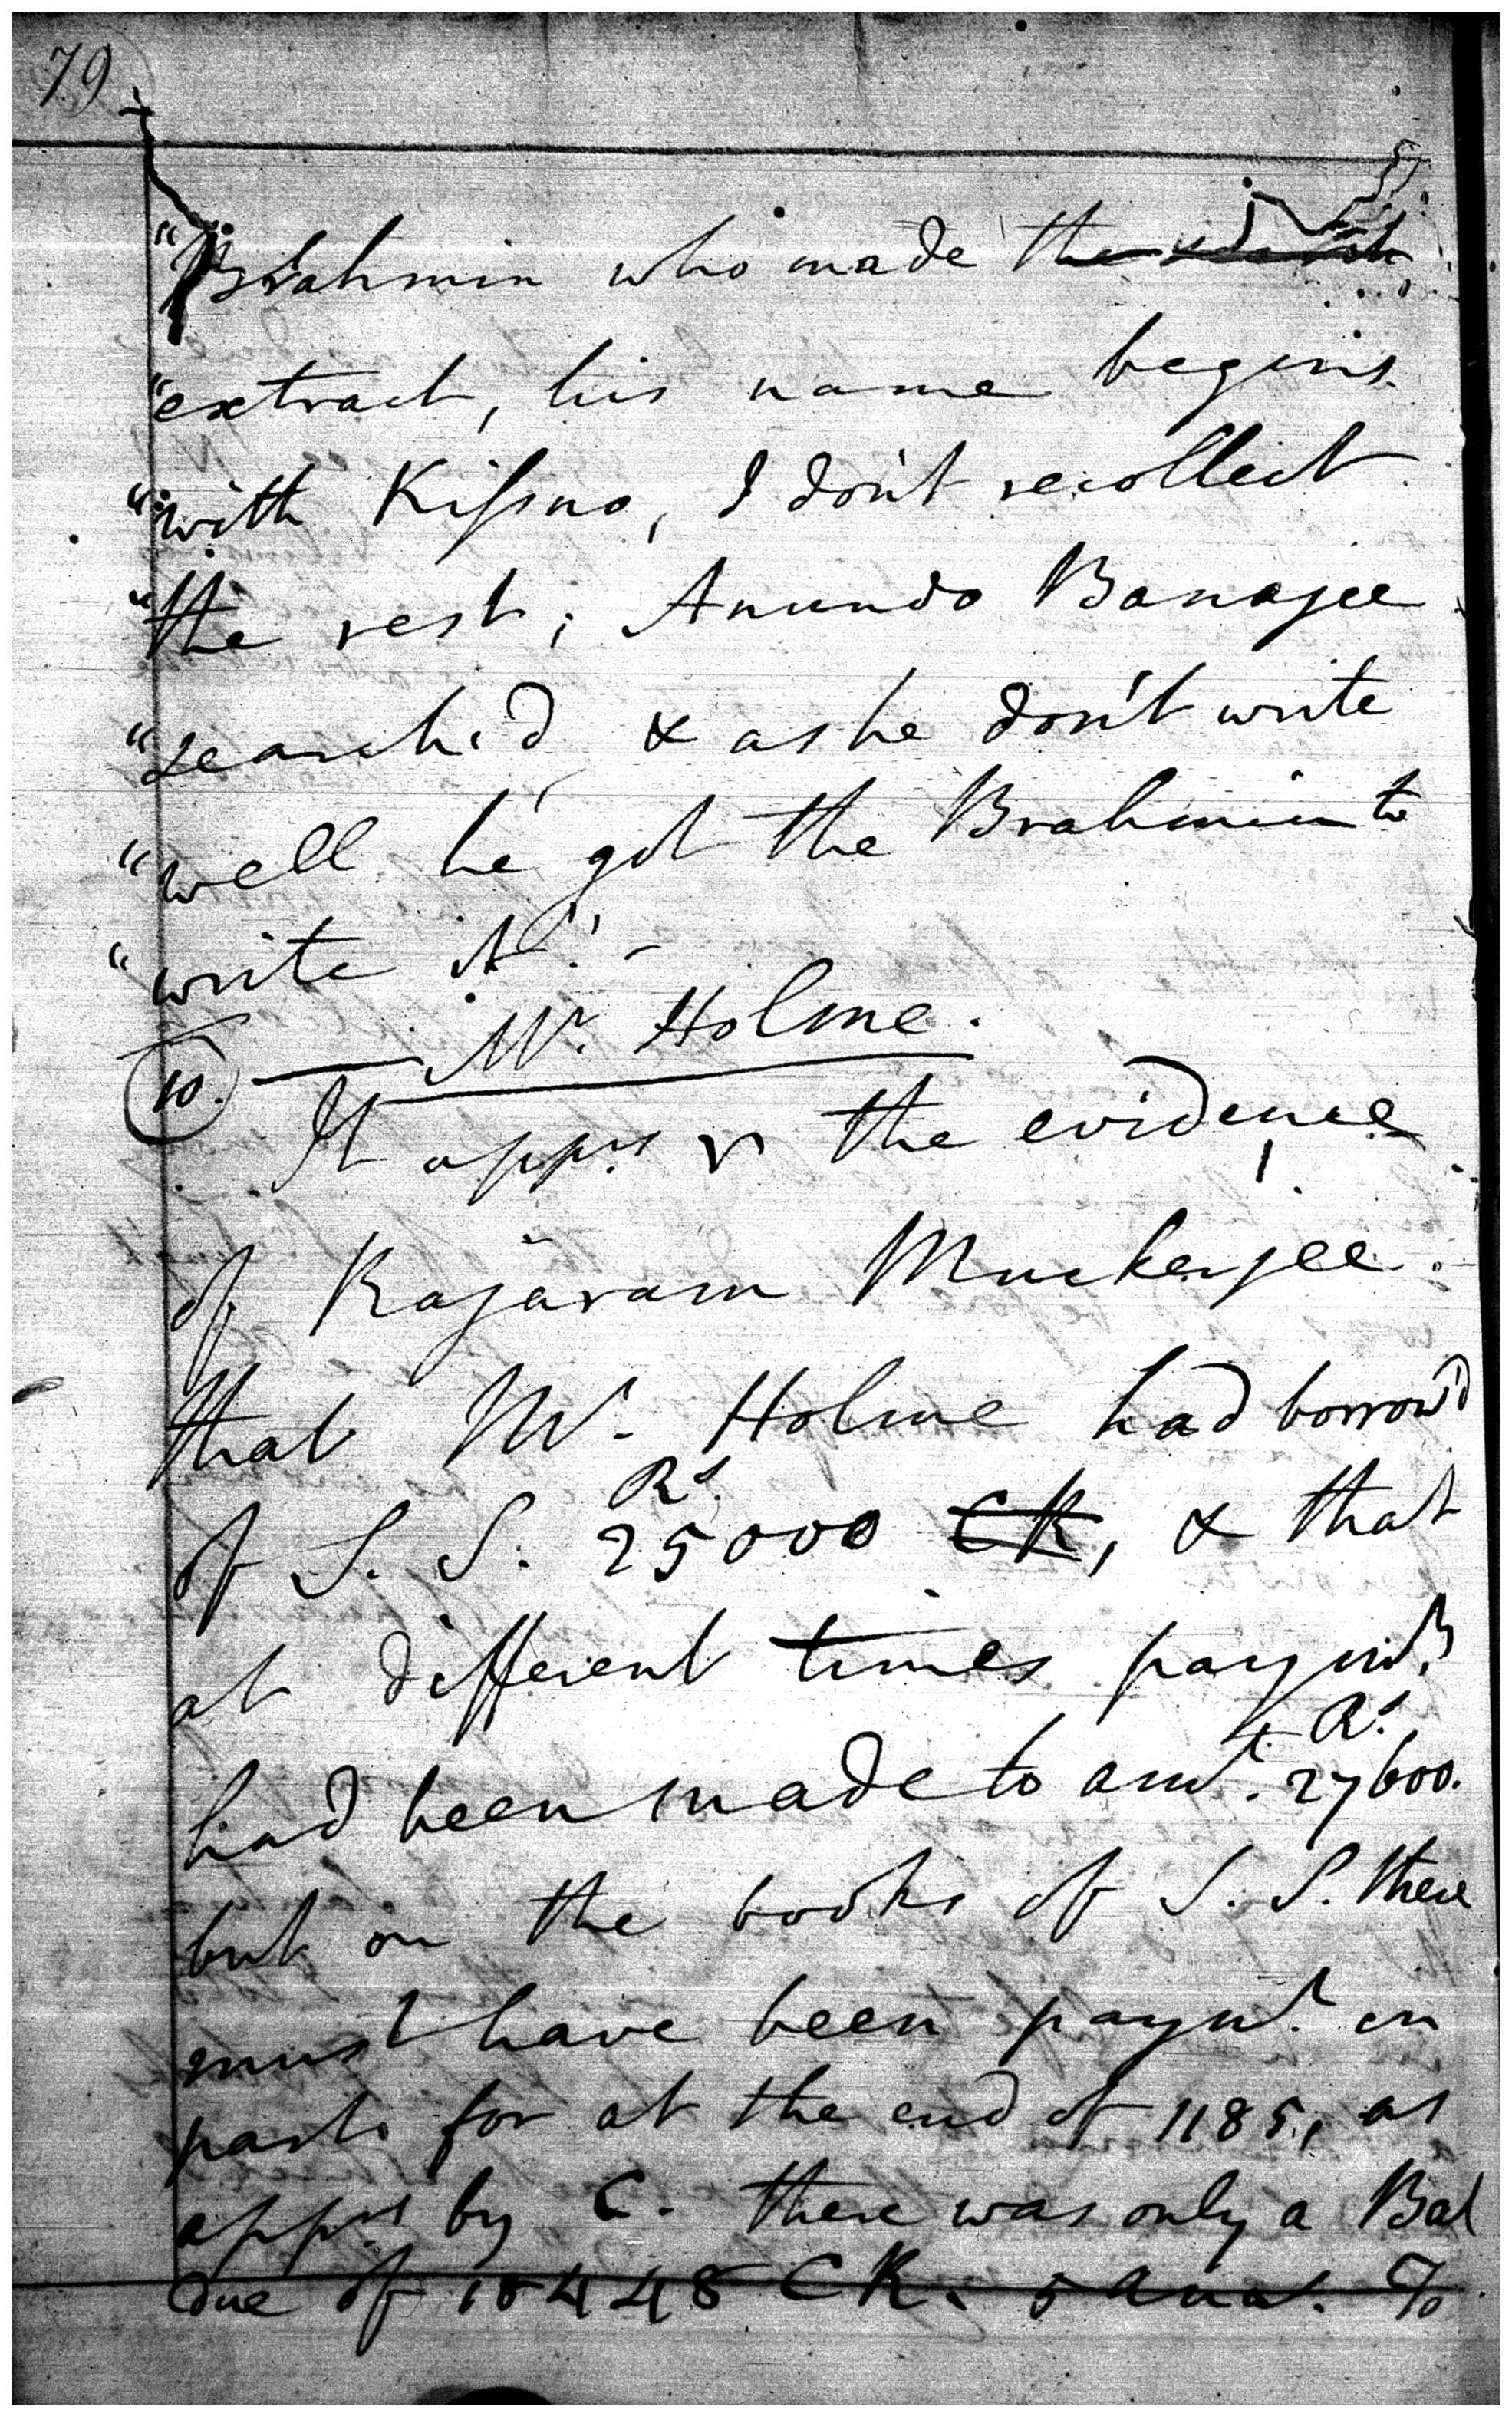 79
"Brahmin who made the
"extract, his name begins
"with Kissno, I don't recollect
"the rest; Anundo Banajee
"search'd & as he don't write
"well he got the Brahmin to
"write it." -
10. — Mr. Holme.
It apprs the evidence
of Rajaram Muckerjee.
that Mr. Holme had borrow'd
of S. S. Rs. 25000 CR, & that
at different times paymts
had been made to amt. Rs. 27600.
but on the books of S. S. there
must have been paymt. in
part for at the end of 1185, as
apprs by C. there was only a Bal
due of 18448 CR. 5 ana.